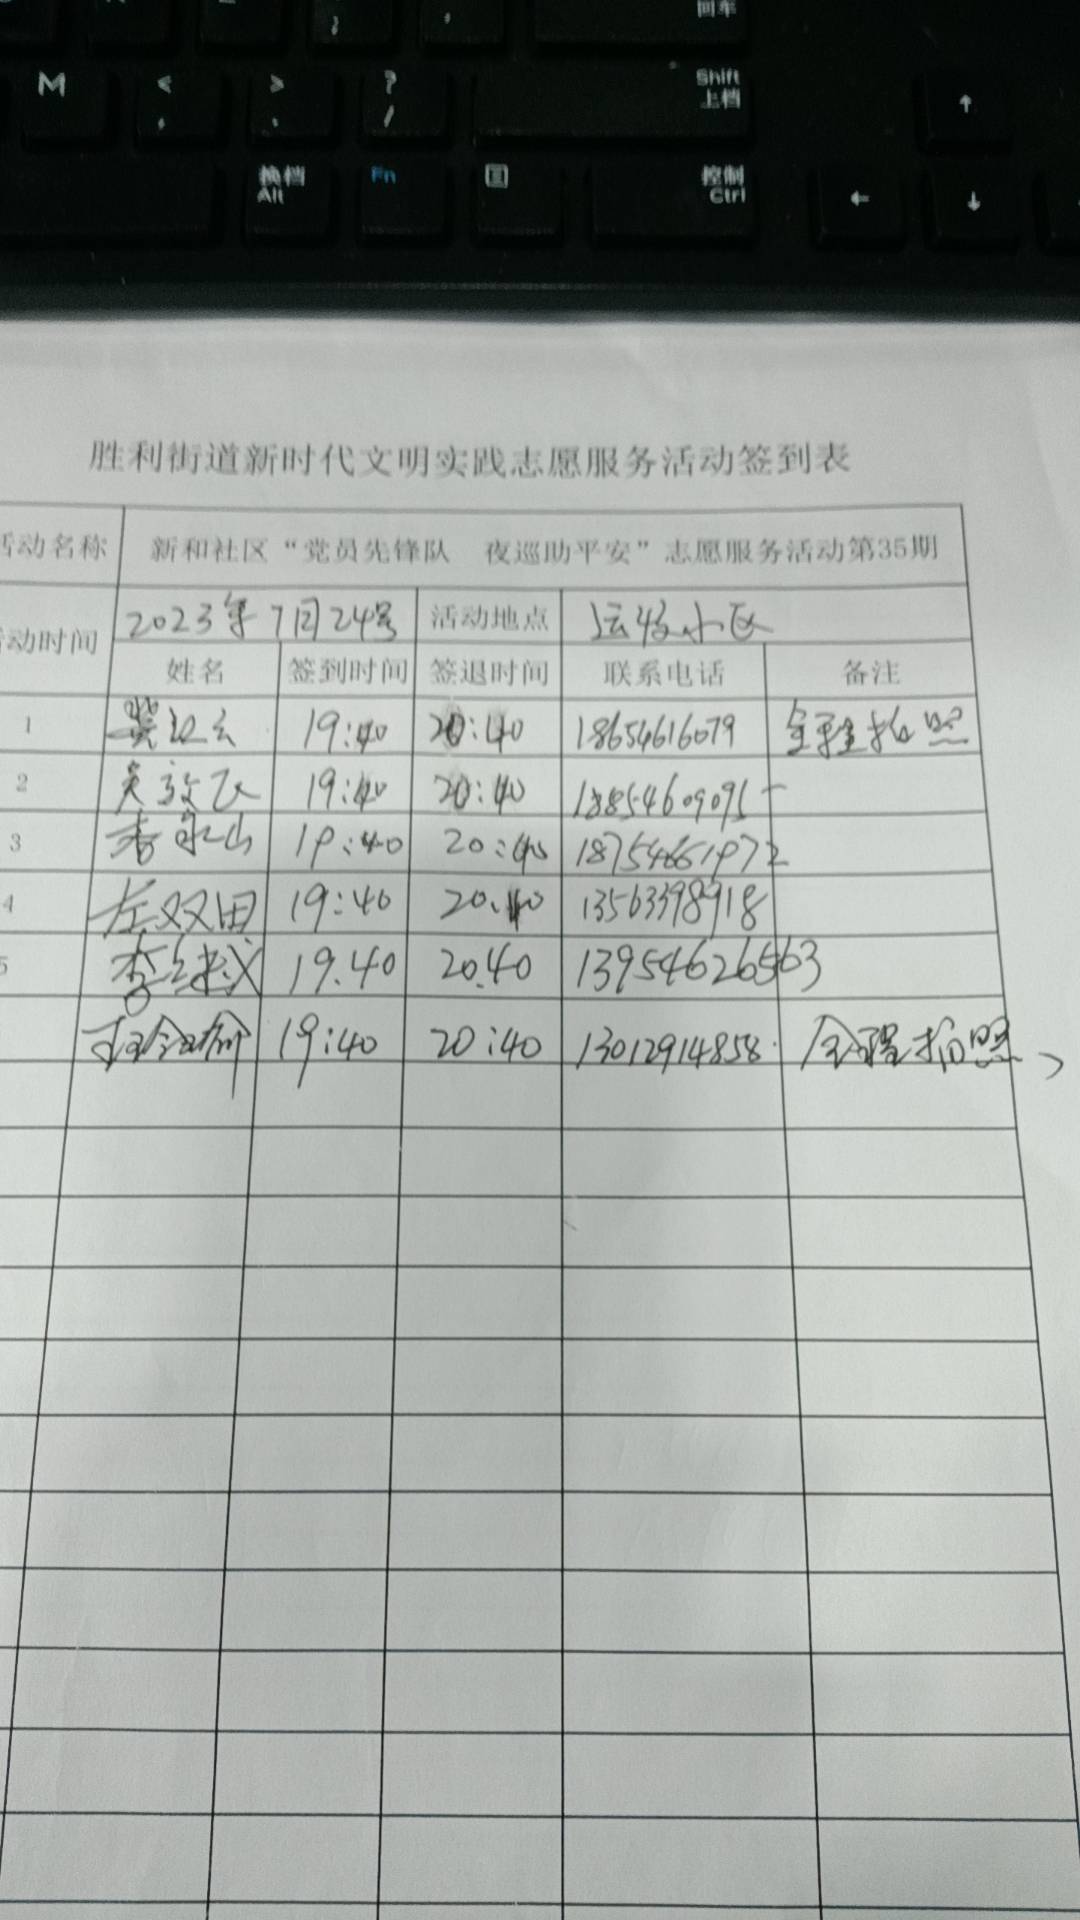 回车
M < , > . ? / Shift 上档 ↑
换档 Alt Fn 控制 Ctrl ← ↓
胜利街道新时代文明实践志愿服务活动签到表
活动名称 新和社区“党员先锋队 夜巡助平安”志愿服务活动第35期
活动时间 2023年7月24号 活动地点 小区
姓名 签到时间 签退时间 联系电话 备注
1 19:40 20:40 18654616079 全程拍照
2 19:40 20:40 18854609095
3 李永山 19:40 20:40 18754661972
4 左双田 19:40 20.40 13563398918
5 李 19.40 20.40 13954626563
19:40 20:40 13012914858 全程拍照